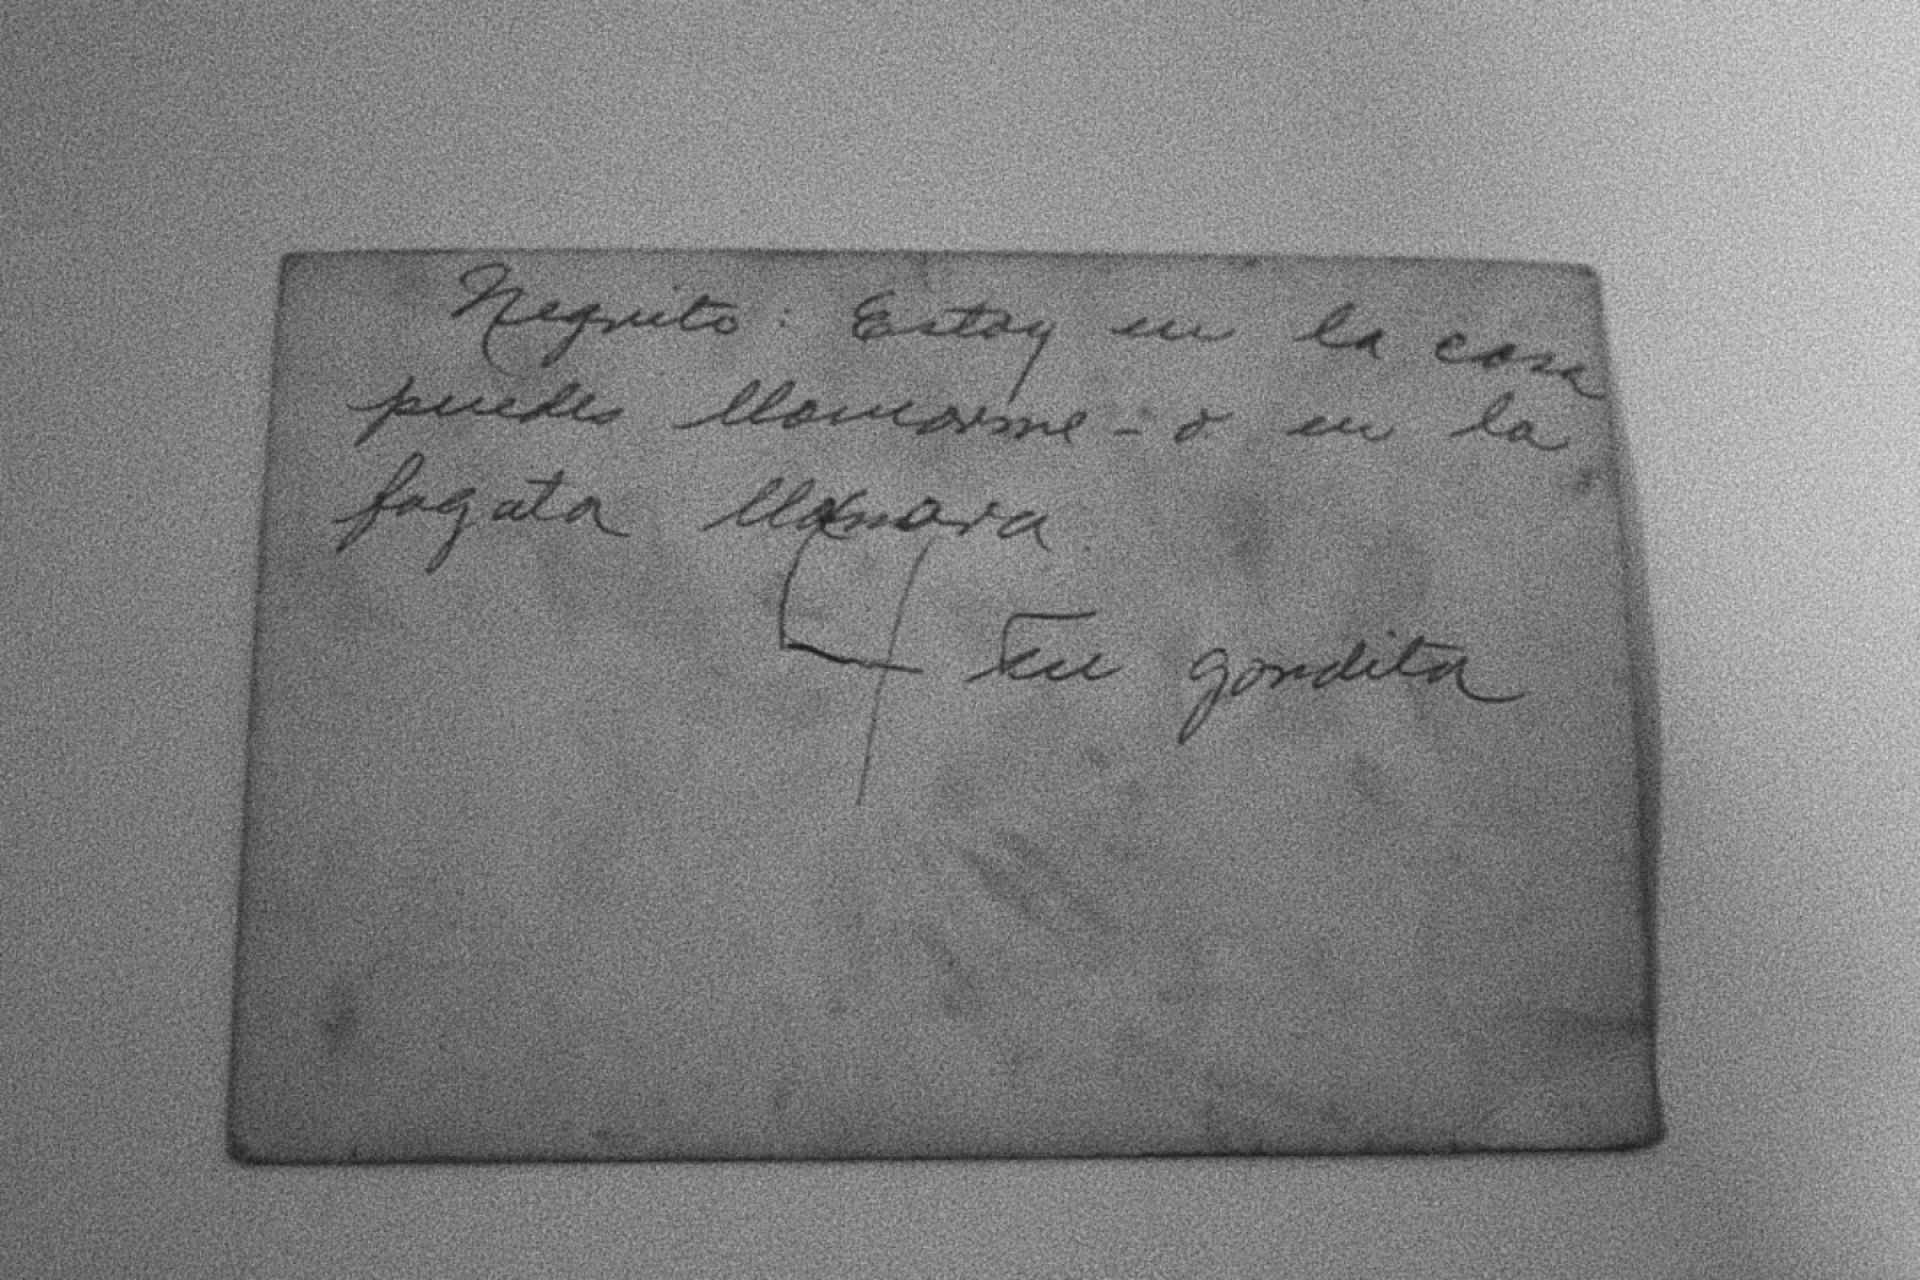 Negrito: Estoy en la casa
puedes llamarme - o en la
fogata llamara
Tu gordita